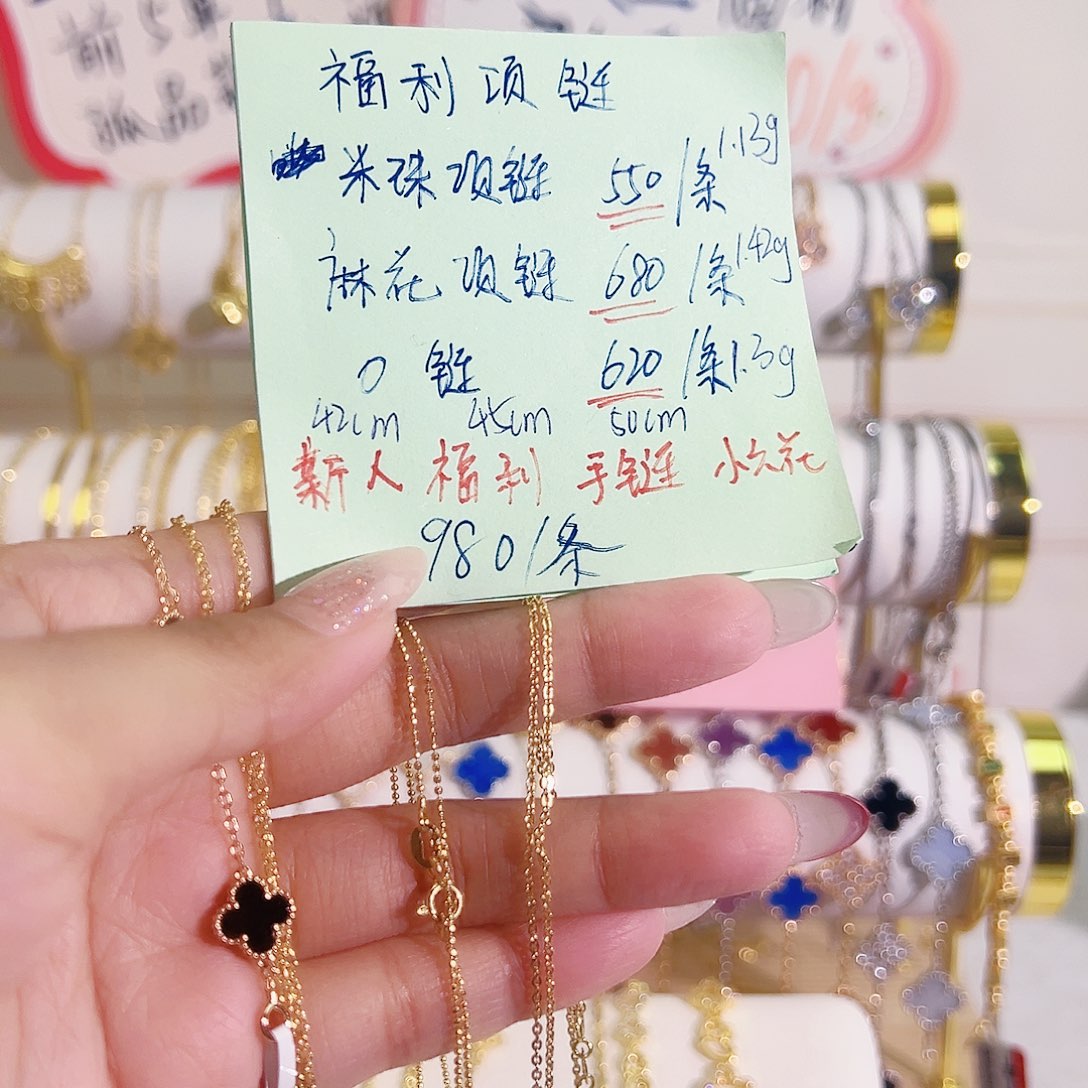 前5
孤品
福利项链
米珠项链 550/条 1.13g
麻花项链 680/条 1.42g
O链 620/条 1.3g
42cm 45cm 50cm
新人福利 手链 小六花
980/条